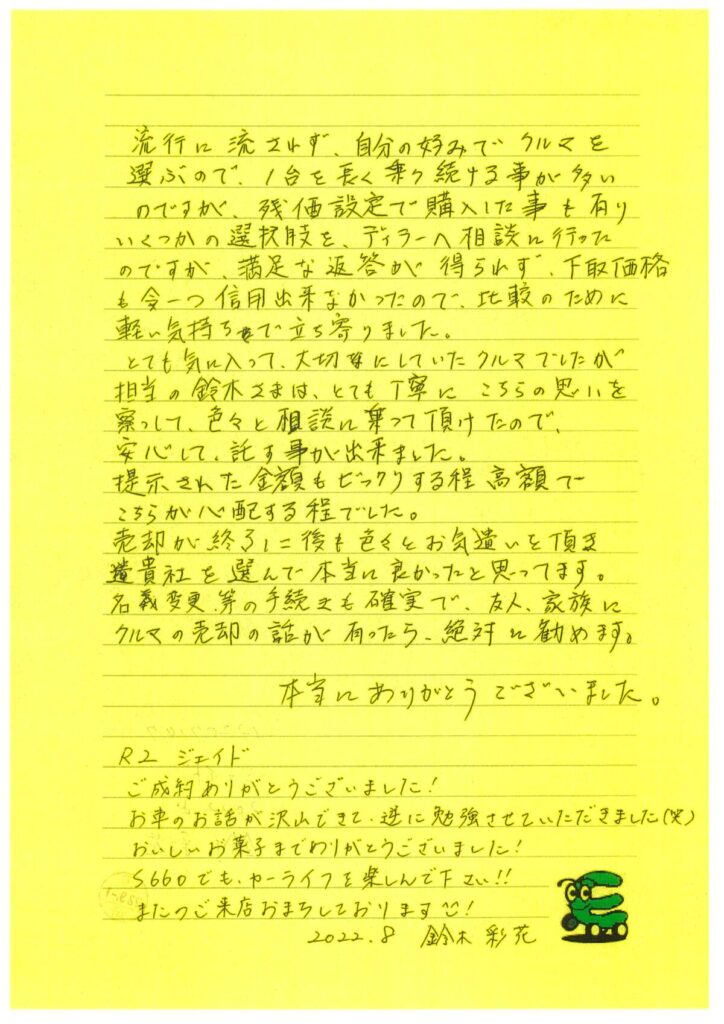 流行に流されず、自分の好みでクルマを
選ぶので、1台を長く乗り続ける事が多い
のですが、残価設定で購入した事も有り
いくつかの選択肢を、ディラーへ相談に行った
のですが、満足な返答が得られず、下取価格
も今一つ信用出来なかったので、比較のために
軽い気持ちで立ち寄りました。
とても気に入って、大切にしていたクルマでしたが
担当の鈴木さまは、とても丁寧にこちらの思いを
察っして、色々と相談に乗って頂けたので、
安心して、託す事が出来ました。
提示された金額もビックリする程高額で
こちらが心配する程でした。
売却が終了した後も色々とお気遣いを頂き
貴社を選んで本当に良かったと思ってます。
名義変更等の手続きも確実で、友人、家族に
クルマの売却の話が有ったら、絶対に勧めます。
本当にありがとうございました。
R2 ジェイド
ご成約ありがとうございました!
お車のお話が沢山できて、逆に勉強させていただきました(笑)
おいしいお菓子までありがとうございました!
S660でも、カーライフを楽しんで下さい!!
またのご来店おまちしております!
2022.8 鈴木 彩花